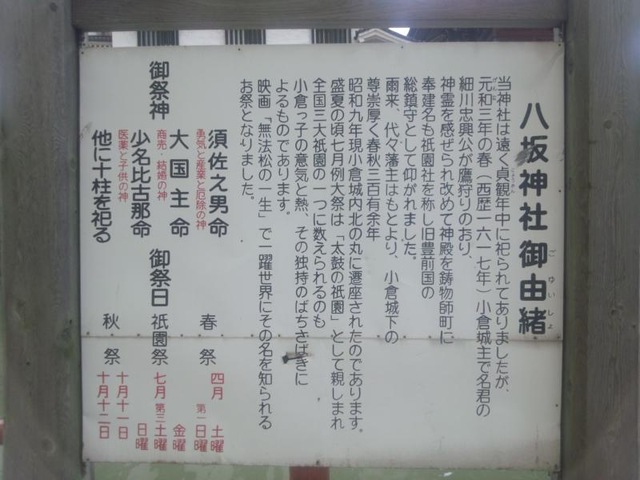 八坂神社御由緒
ごゆいしょ
当神社は遠く貞観年中に祀られてありましたが、
元和三年の春（西歴一六一七年）小倉城主で名君の
細川忠興公が鷹狩りのおり、
神霊を感ぜられ改めて神殿を鋳物師町に
奉建名も祇園社を称し旧豊前国の
総鎮守として仰がれました。
爾来、代々藩主はもとより、小倉城下の
尊崇厚く春秋三百有余年
昭和九年現小倉城内北の丸に遷座されたのであります。
盛夏の頃七月例大祭は「太鼓の祇園」として親しまれ
全国三大祇園の一つに数えられるのも
小倉っ子の意気と熱、その独持のばちさばきに
よるものであります。
映画「無法松の一生」で一躍世界にその名を知られる
お祭となりました。
御祭神
須佐之男命
勇気と産業と厄除の神
大国主命
商売 結婚の神
少名比古那命
医薬と子供の神
他に十柱を祀る
御祭日
春祭 四月 第一 土曜 日曜
祇園祭 七月 第三 金曜 土曜 日曜
秋祭 十月十一日 十月十二日